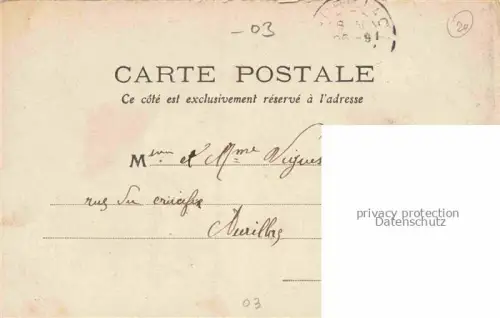 -03
20
CARTE POSTALE
Ce côté est exclusivement réservé à l'adresse
Mr et Mme Vigues
rue du crucifix
Aurillac
privacy protection
Datenschutz
03